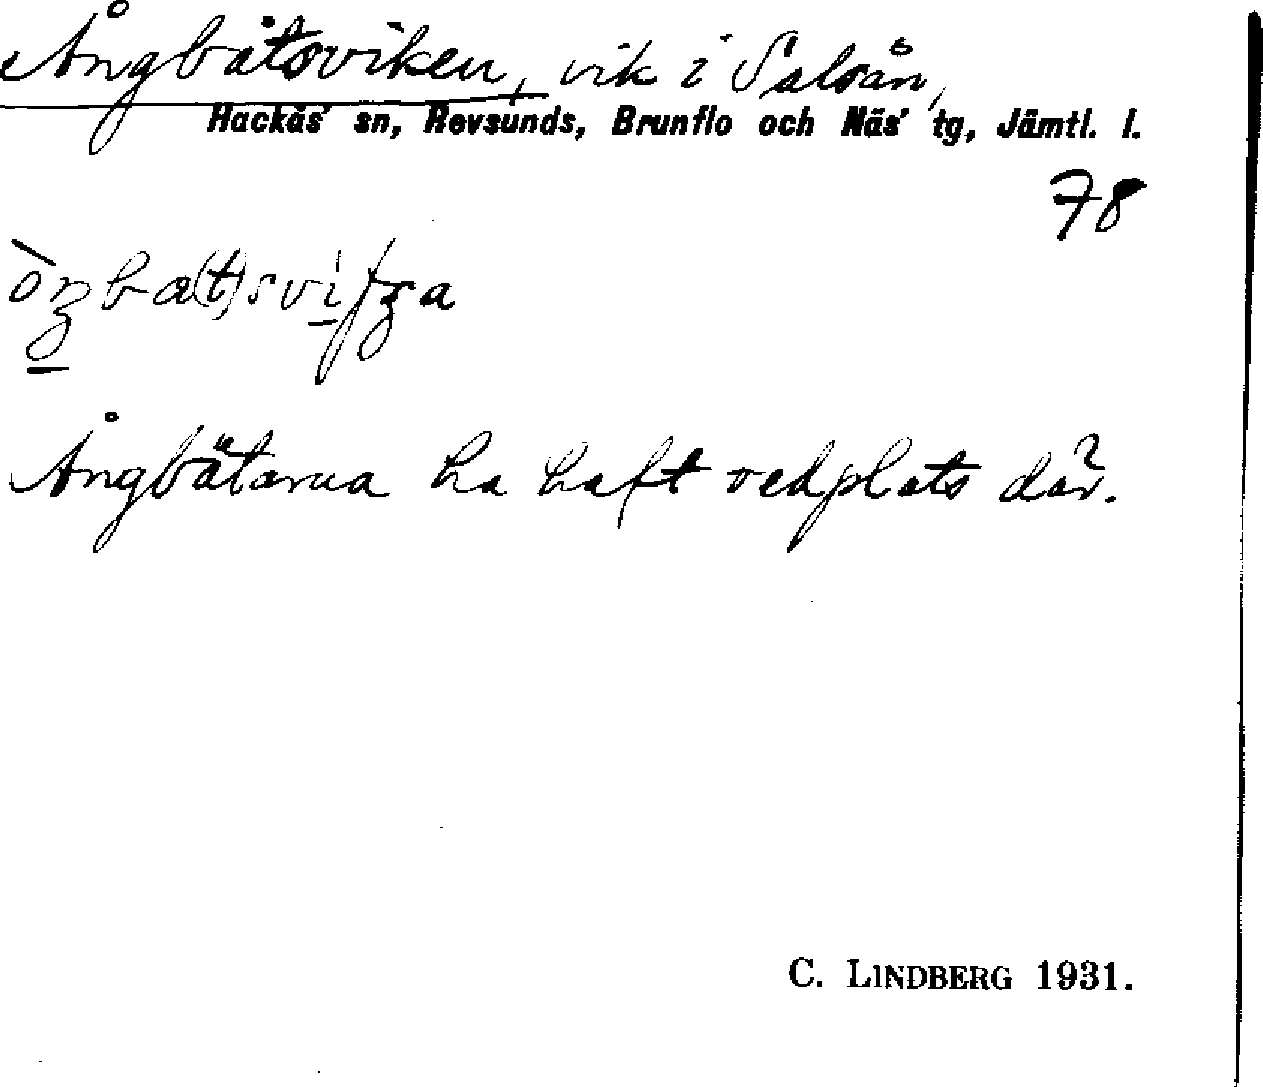 Ångbåtsviken, vik i Salsån,
Hackås' sn, Revsunds, Brunflo och Näs' tg, Jämtl. l.
78
Ångbåtarna ha haft vedplats där.
C. LINDBERG 1931.